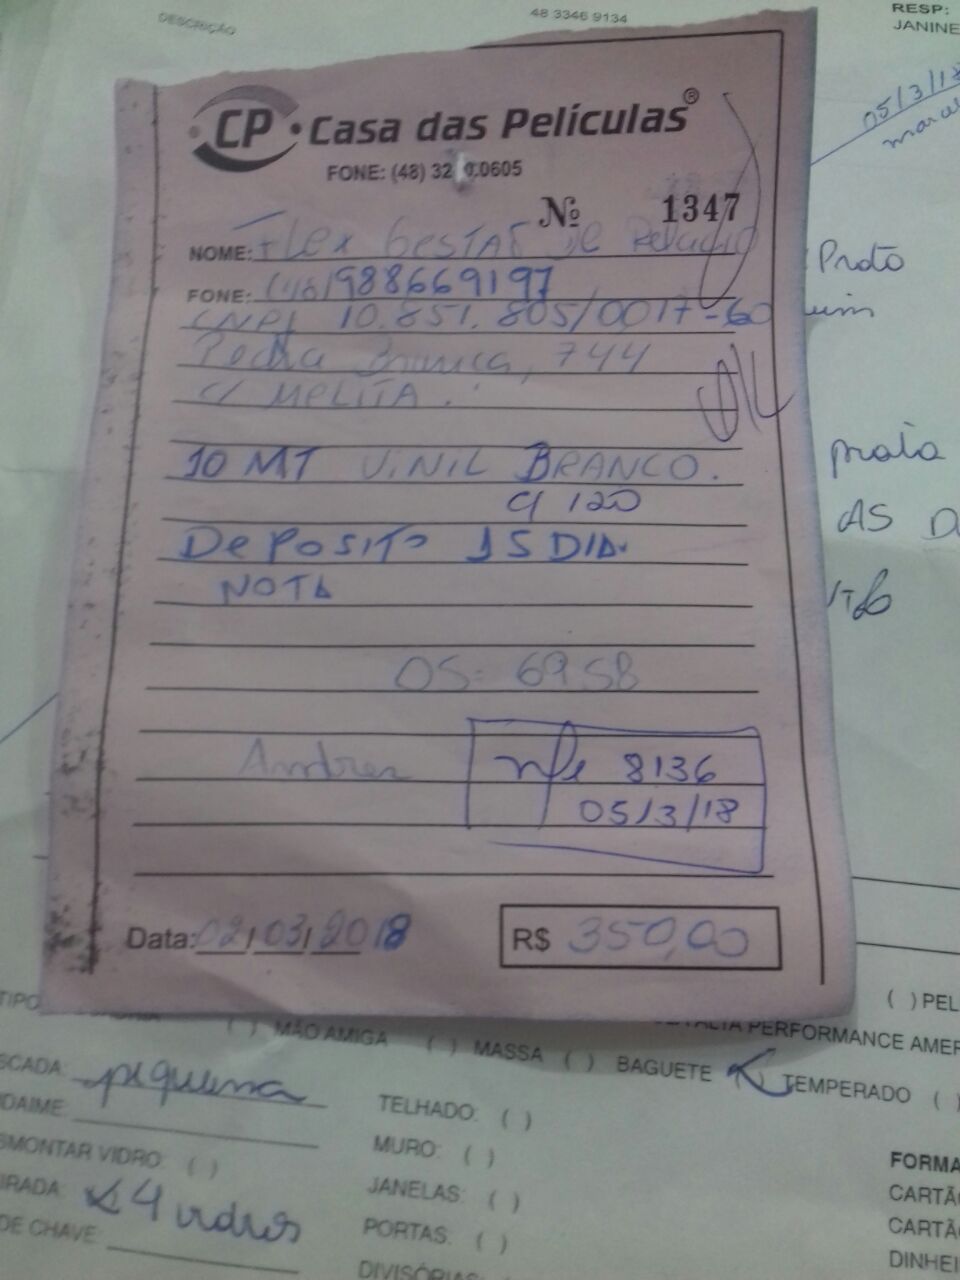 DESCRIÇÃO
48 3346 9134
RESP:
JANINE
05/3/18
CP Casa das Películas®
FONE: (48) 32 0.0605
Nº 1347
NOME: Flex Gestão de Relação
FONE: (48) 988669197
CNPJ 10.851.805/0017-60
Pedra Branca, 744
c/ MELITA.
OK
10 MT VINIL BRANCO.
C/ 120
DEPOSITO 15 DIA
NOTA
OS: 6958
Andrea
nfe 8136
05/3/18
Data: 02/03/2018
R$ 350,00
prata
AS
( ) MÃO AMIGA ( ) MASSA ( ) BAGUETE TEMPERADO ( )
ALTA PERFORMANCE AMER
( ) PEL
SCADA: pequena
DAIME:
SMONTAR VIDRO: ( )
IRADA: 4 vidros
DE CHAVE:
TELHADO: ( )
MURO: ( )
JANELAS: ( )
PORTAS: ( )
DIVISÓRIAS
FORMA
CARTÃ
CARTÃ
DINHEI